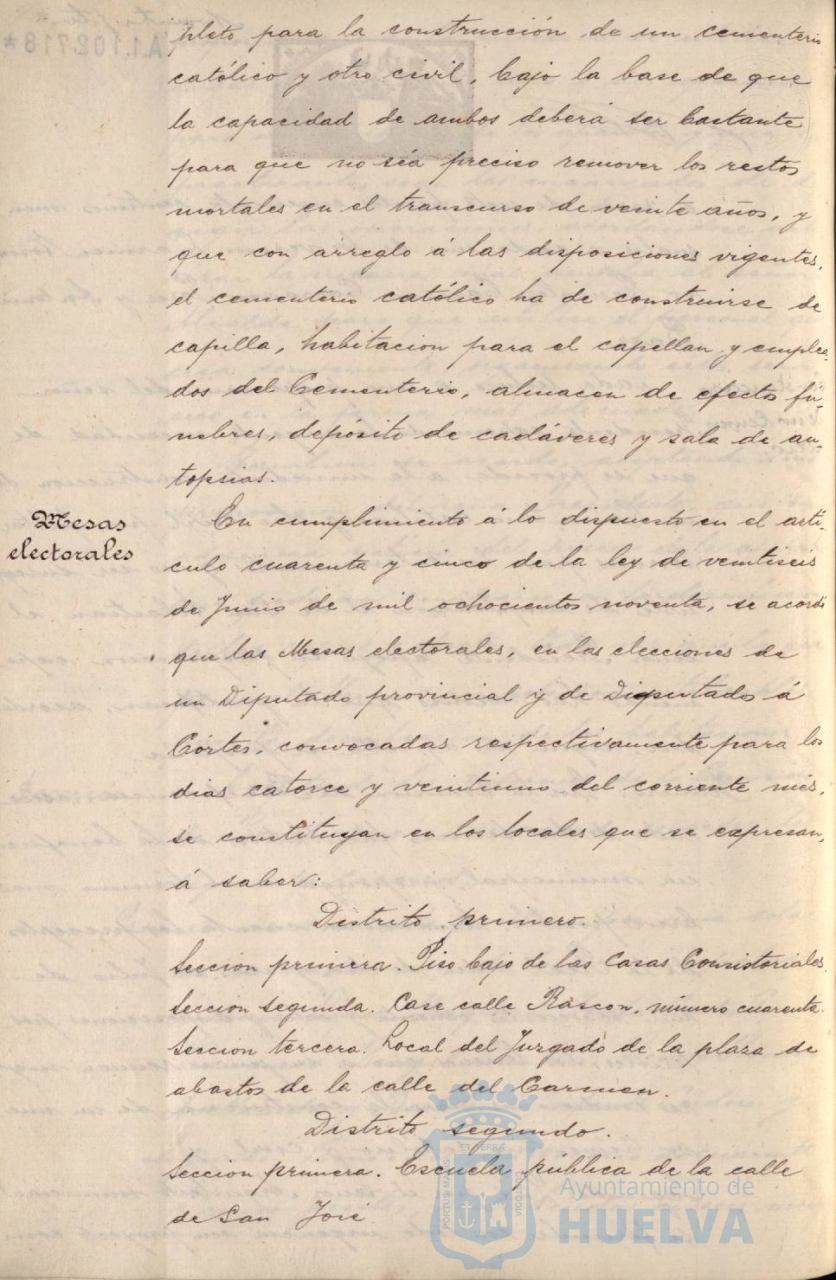 pleto para la construcción de un cementerio
católico y otro civil, bajo la base de que
la capacidad de ambos deberá ser bastante
para que no séa preciso remover los restos
mortales en el transcurso de veinte años, y
que con arreglo á las disposiciones vigentes,
el cementerio católico ha de construirse de
capilla, habitacion para el capellan y emplea-
dos del Cementerio, almacen de efectos fú-
nebres, depósito de cadáveres y sala de au-
topsias.
Mesas
electorales
En cumplimiento á lo dispuesto en el artí-
culo cuarenta y cinco de la ley de veintiseis
de Junio de mil ochocientos noventa, se acordó
que las Mesas electorales, en las elecciones de
un Diputado provincial y de Diputados á
Córtes, convocadas respectivamente para los
dias catorce y veintiuno del corriente mes,
se constituyan en los locales que se expresan,
á saber:
Distrito primero.
Seccion primera. Piso bajo de las Casas Consistoriales.
Seccion segunda. Casa calle Rascon, número cuarenta.
Seccion tercera. Local del Juzgado de la plaza de
abastos de la calle del Carmen.
Distrito segundo.
Seccion primera. Escuela pública de la calle
de San José.
Ayuntamiento de
HUELVA